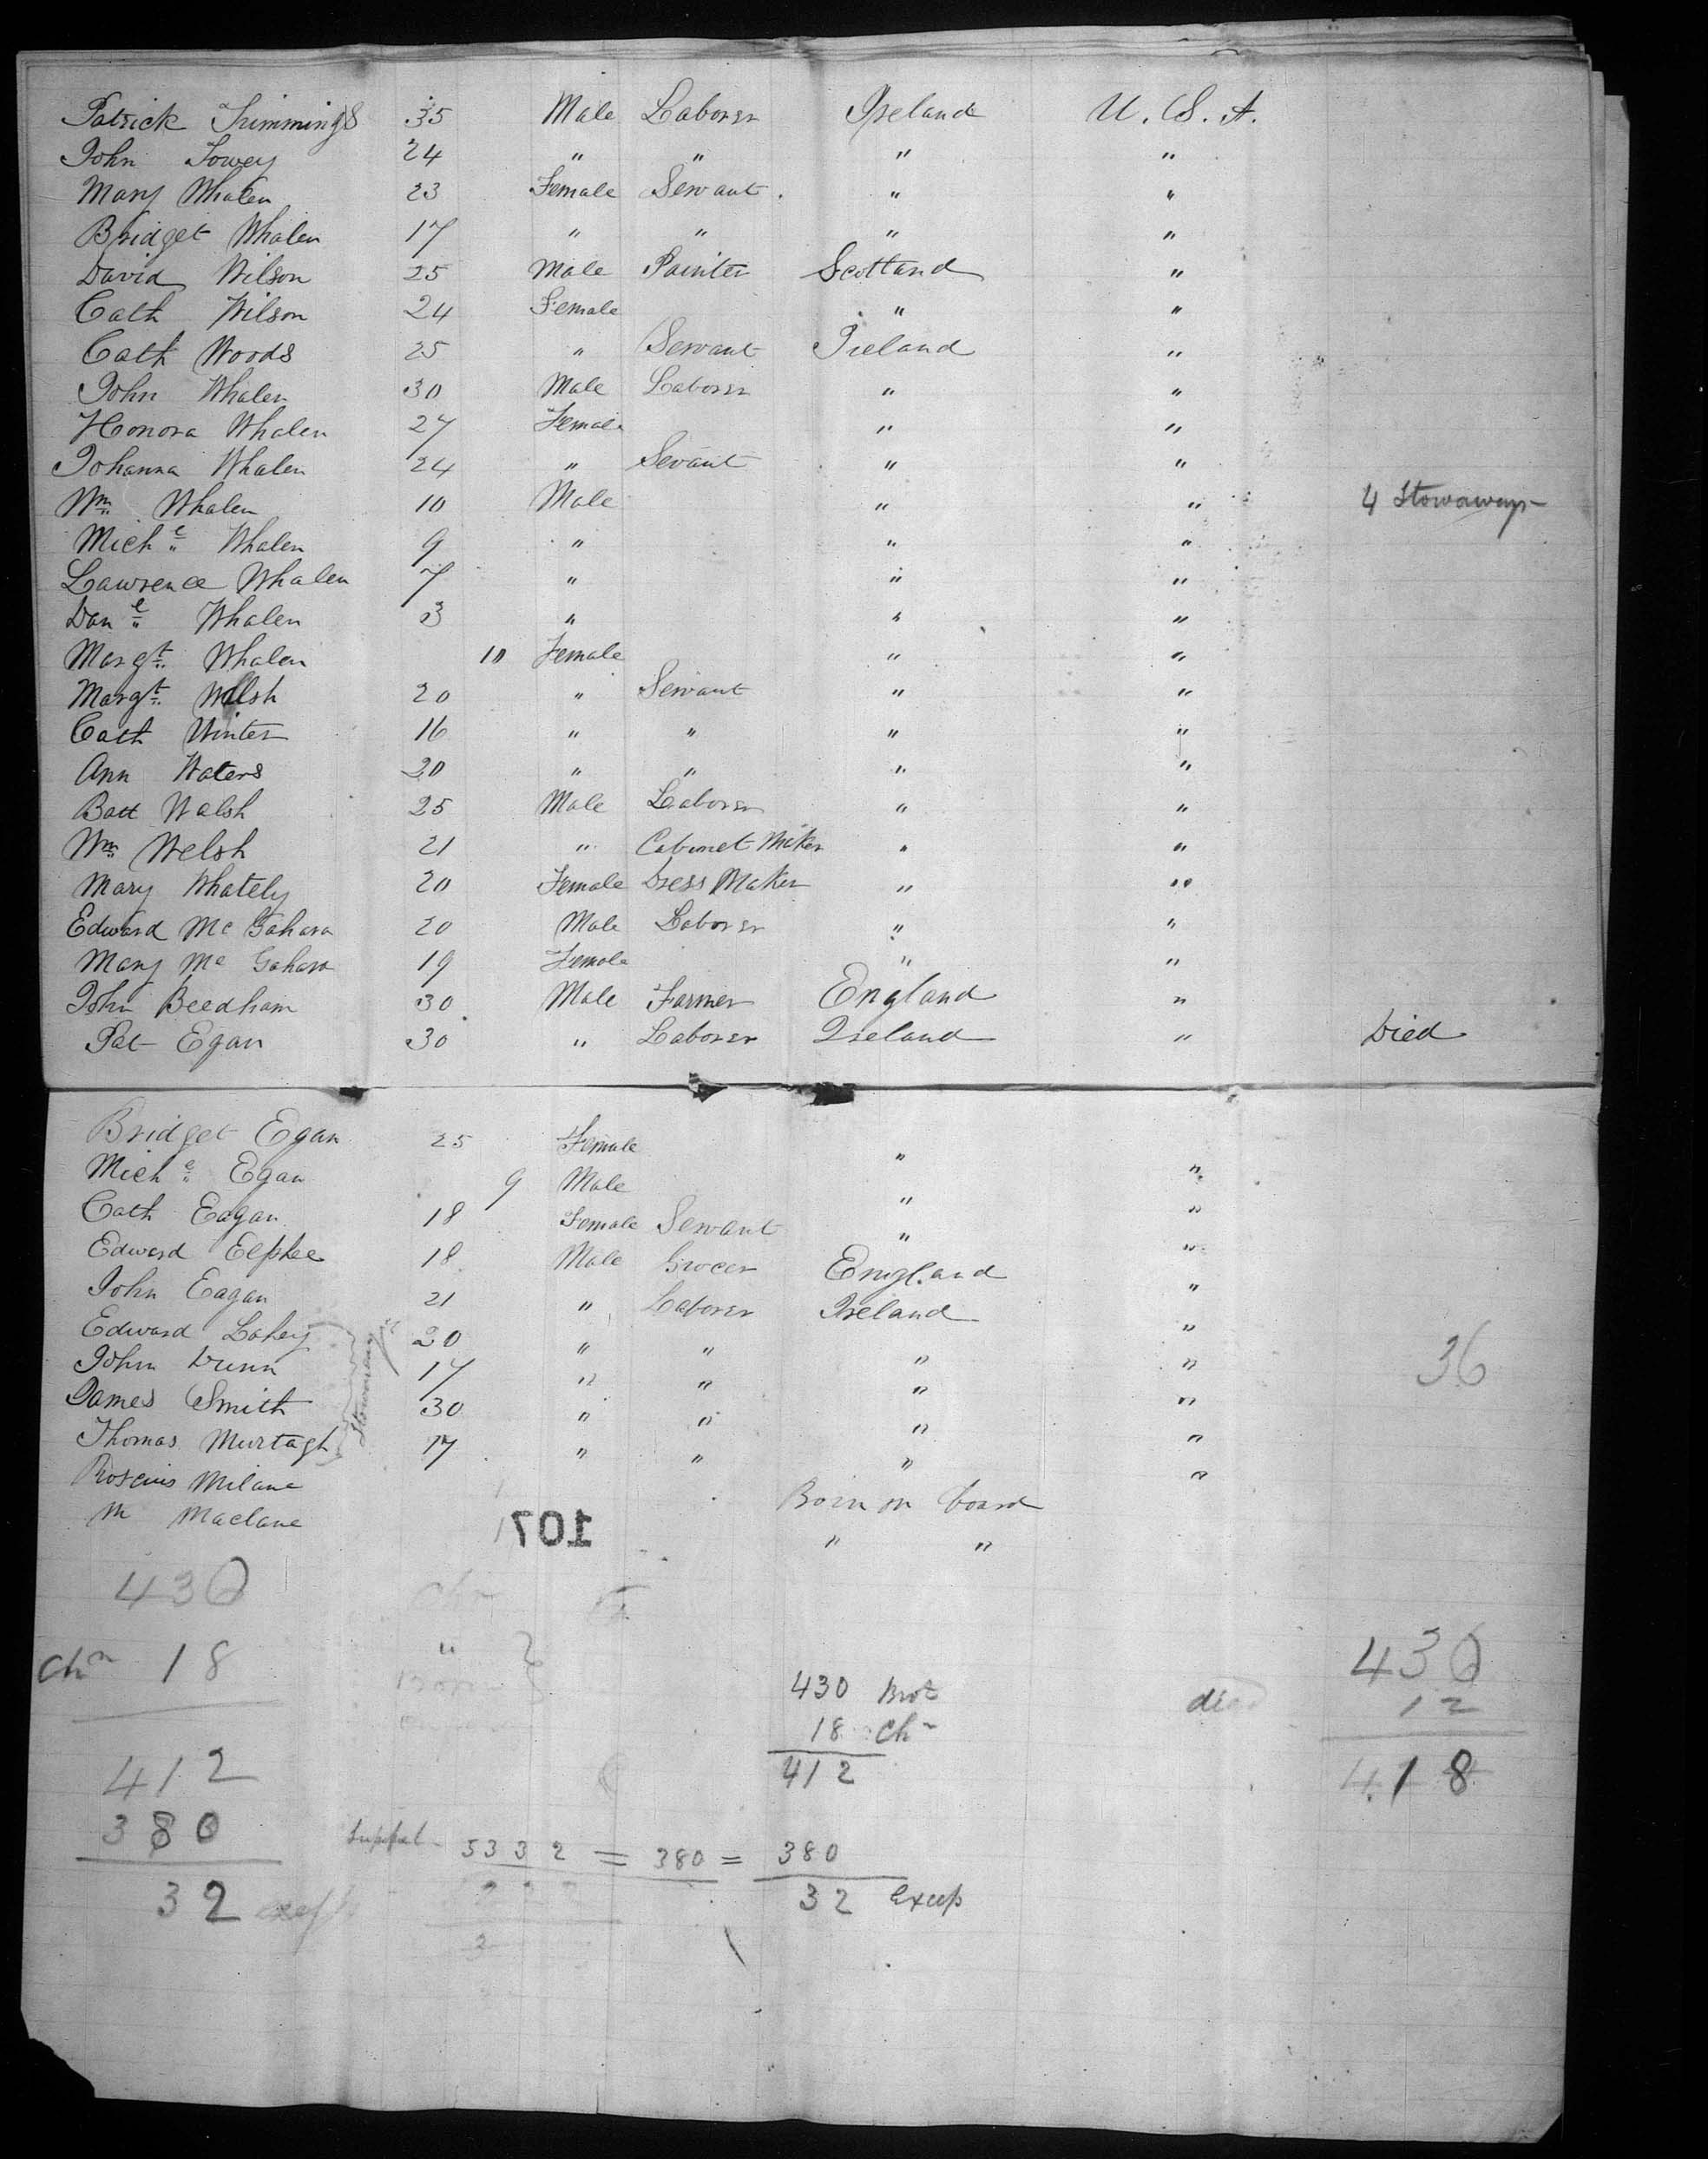 Patrick Trimmings 35 Male Laborer Ireland U. S. A.
John Towey 24 " " " "
Mary Whalen 23 Female Servant " "
Bridget Whalen 17 " " " "
David Wilson 25 Male Painter Scotland "
Cath Wilson 24 Female " "
Cath Woods 25 " Servant Ireland "
John Whalen 30 Male Laborer " "
Honora Whalen 27 Female " "
Johanna Whalen 24 " Sevant " "
Wm Whalen 10 Male " " 4 Stowaways
Michl Whalen 9 " " "
Lawrence Whalen 7 " " "
Danl Whalen 3 " " "
Margt Whalen 10 Female " "
Margt Walsh 20 " Servant " "
Cath Winter 16 " " " "
Ann Waters 20 " " " "
Batt Walsh 25 Male Laborer " "
Wm Welsh 21 " Cabinet Maker " "
Mary Whately 20 Female Dress Maker " "
Edward Mc Gahara 20 Male Laborer " "
Mary Mc Gahara 19 Female " "
John Beedham 30 Male Farmer England "
Pat Egan 30 " Laborer Ireland " Died
Bridget Egan 25 Female " "
Michl Egan 9 Male " "
Cath Eagan 18 Female Servant " "
Edward Elphee 18 Male Grocer England "
John Eagan 21 " Laborer Ireland "
Edward Lahey 20 " " " "
John Dunn 17 " " " " 36
James Smith 30 " " " "
Thomas Murtagh 17 " " " "
Stowaways
Roscius Milane Born on board
M Maclane " "
107
430
Chn 18 "
430 Brot died 430
18 Ch 12
412 412 418
380
Suppl 5332 = 380 = 380
32 32 Excess